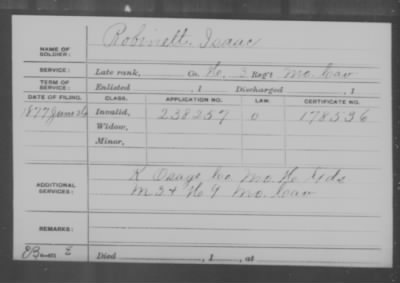 Robinett, Isaac
NAME OF SOLDIER:
SERVICE: Late rank, Co. H, 3 Reg't Mo. Cav
TERM OF SERVICE: Enlisted , 1 Discharged , 1
DATE OF FILING. CLASS. APPLICATION NO. LAW. CERTIFICATE NO.
1877 June Invalid, 238257 0 178536
Widow,
Minor,
ADDITIONAL SERVICES: K Osage Co. Mo. H. Gds
M 3 & H 9 Mo. Cav
REMARKS:
Died , 1 , at